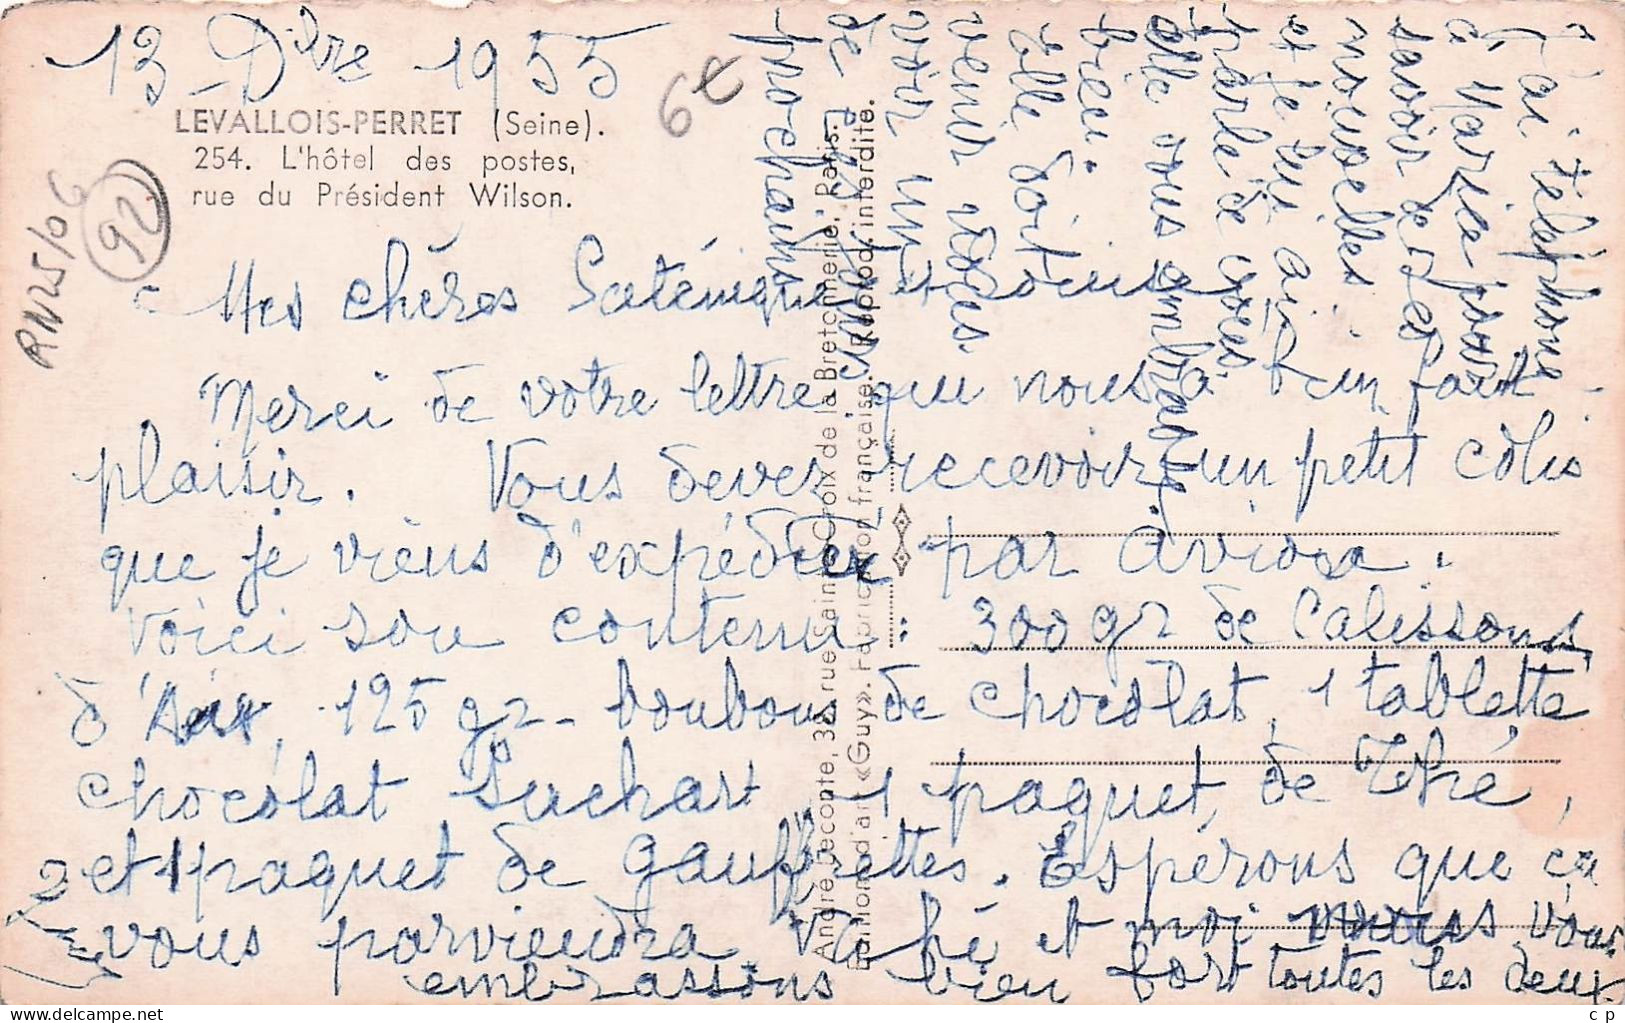 13 Dbre 1955
6€
LEVALLOIS-PERRET (Seine).
254. L'hôtel des postes,
rue du Président Wilson.
92
RN25/06
Mes chéres Saténique et
Merci de votre lettre que nous a bien fait
plaisir. Vous devez recevoir un petit côlis
que je viens d'expédier par avion.
Voici son contenu : 300 gr de Calissons
d'Aix, 125 gr- bonbons de chocolat, 1 tablette
chocolat Suchart, 1 paquet de Thé,
et 1 paquet de gauffrettes. Espérons que ça
vous parviendra. et moi vous
embrassons bien fort toutes les deux.
J'ai téléphoné
à Marie pour
savoir de ses
nouvelles
et je lui ai
parlé de vous.
elle vous embrasse
bien.
Elle doit
venir vous
voir un
de ces jours
prochains
André Leconte, 38, rue Sainte-Croix de la Bretonnerie, Paris.
Editions d'art «Guy». Fabrication française. Reprod. interdite.
c p